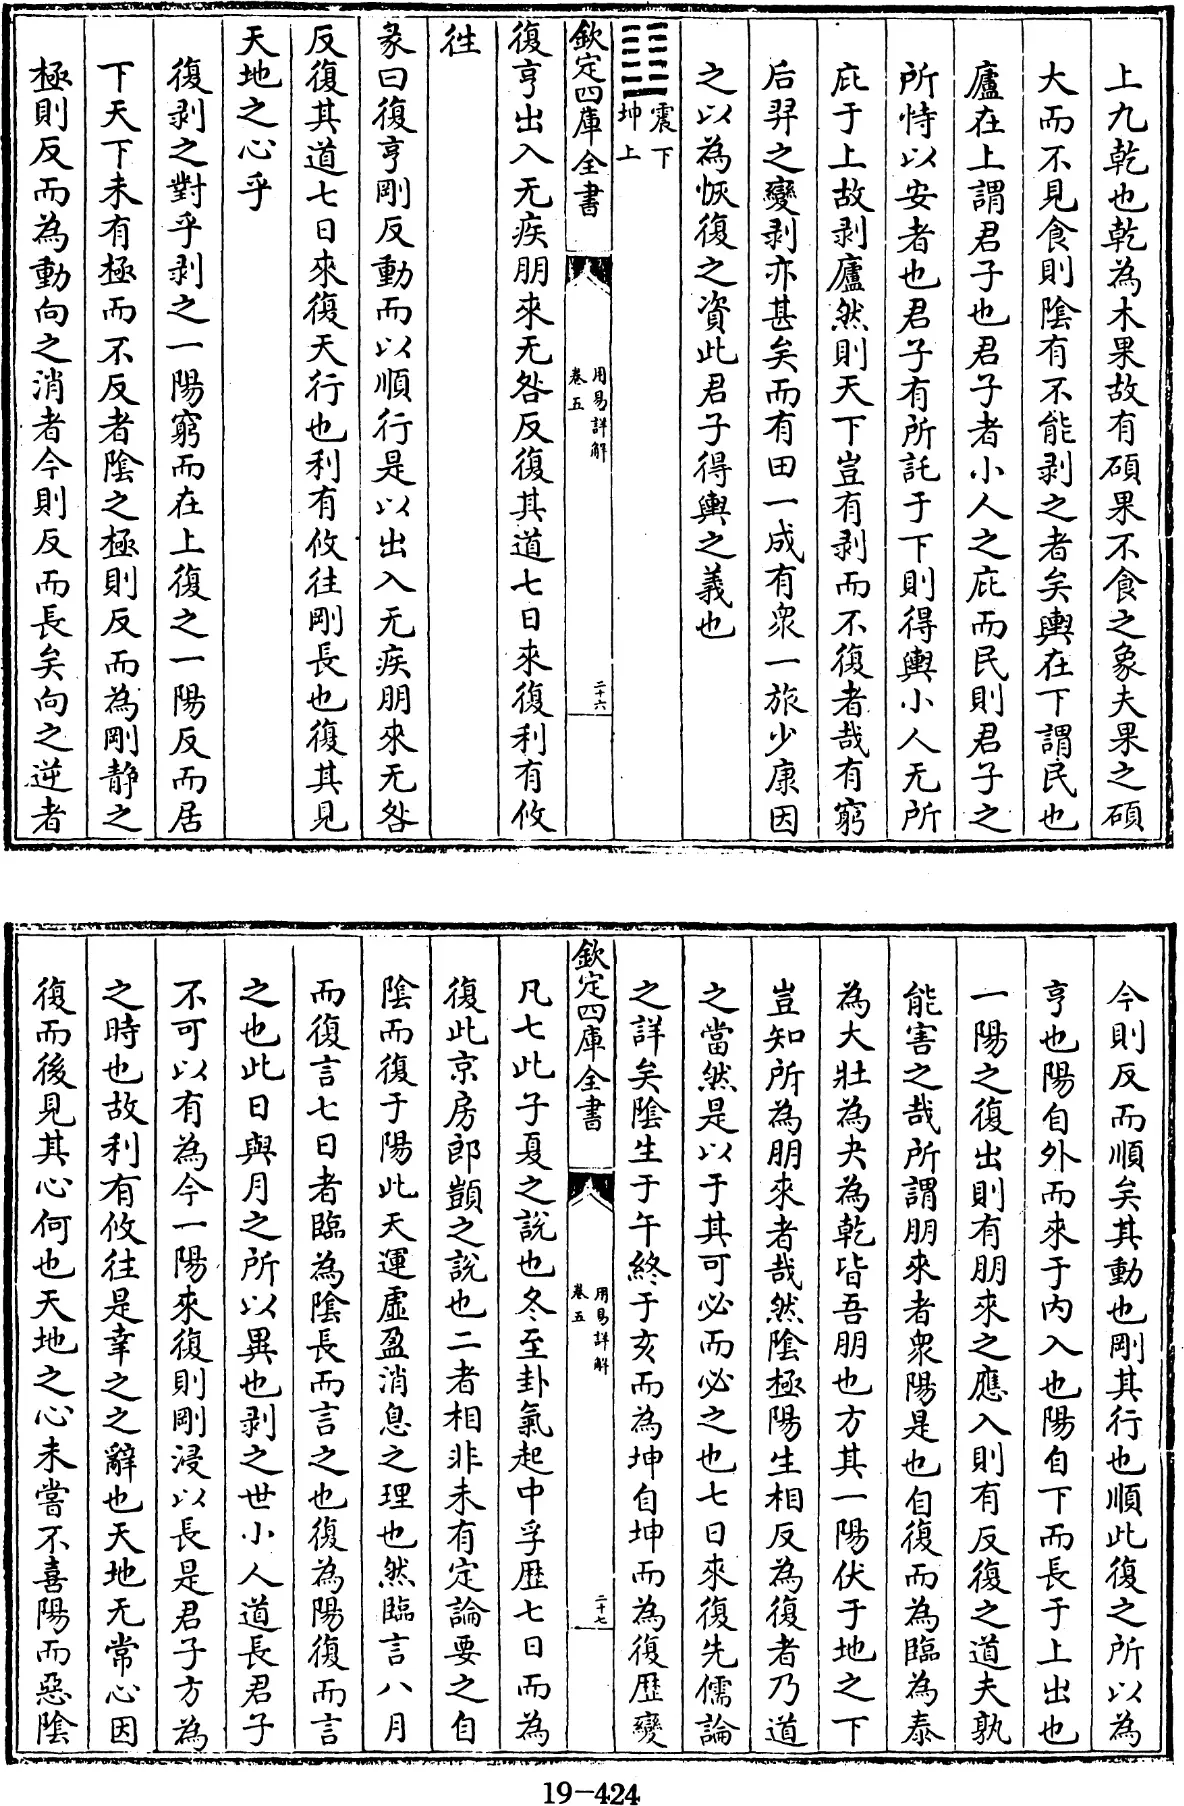 上九乾也乾為木果故有碩果不食之象夫果之碩
大而不見食則陰有不能剥之者矣輿在下謂民也
廬在上謂君子也君子者小人之庇而民則君子之
所恃以安者也君子有所託于下則得輿小人无所
庇于上故剥廬然則天下豈有剥而不復者哉有窮
后羿之變剥亦甚矣而有田一成有衆一旅少康因
之以為恢復之資此君子得輿之義也
震下
坤上
欽定四庫全書
用易詳解
卷五
二十六
復亨出入无疾朋來无咎反復其道七日來復利有攸
往
彖曰復亨剛反動而以順行是以出入无疾朋來无咎
反復其道七日來復天行也利有攸往剛長也復其見
天地之心乎
復剥之對乎剥之一陽窮而在上復之一陽反而居
下天下未有極而不反者陰之極則反而為剛静之
極則反而為動向之消者今則反而長矣向之逆者
今則反而順矣其動也剛其行也順此復之所以為
亨也陽自外而來于内入也陽自下而長于上出也
一陽之復出則有朋來之應入則有反復之道夫孰
能害之哉所謂朋來者衆陽是也自復而為臨為泰
為大壯為夬為乾皆吾朋也方其一陽伏于地之下
豈知所為朋來者哉然陰極陽生相反為復者乃道
之當然是以于其可必而必之也七日來復先儒論
之詳矣陰生于午終于亥而為坤自坤而為復歴變
欽定四庫全書
用易詳解
卷五
二十七
凡七此子夏之説也冬至卦氣起中孚歴七日而為
復此京房郎顗之説也二者相非未有定論要之自
陰而復于陽此天運虛盈消息之理也然臨言八月
而復言七日者臨為陰長而言之也復為陽復而言
之也此日與月之所以異也剥之世小人道長君子
不可以有為今一陽來復則剛浸以長是君子方為
之時也故利有攸往是幸之之辭也天地无常心因
復而後見其心何也天地之心未嘗不喜陽而惡陰
19-424